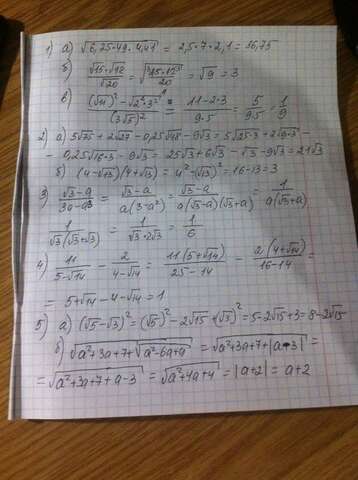 1) а) √6,25·49·4,41 = 2,5·7·2,1 = 36,75
б) √15·√12 / √20 = √(15·12 / 20) = √9 = 3
в) ((√11)² - √2²·3²) / (3√5)² = (11-2·3) / (9·5) = 5 / (9·5) = 1/9
2) а) 5√75 + 2√27 - 0,25√48 - 9√3 = 5√25·3 + 2√9·3 -
- 0,25√16·3 - 9√3 = 25√3 + 6√3 - √3 - 9√3 = 21√3
б) (4-√3)(4+√3) = 4² - (√3)² = 16-13 = 3
3) (√3-a) / (3a-a³) = (√3-a) / (a(3-a²)) = (√3-a) / (a(√3-a)(√3+a)) = 1 / (a(√3+a))
1 / (√3(√3+√3)) = 1 / (√3·2√3) = 1/6
4) 11 / (5-√14) - 2 / (4-√14) = 11(5+√14) / (25-14) - 2(4+√14) / (16-14) =
= 5+√14-4-√14 = 1
5) а) (√5-√3)² = (√5)² - 2√15 + (√3)² = 5-2√15+3 = 8-2√15
б) √(a²+3a+7+√(a²-6a+9)) = √(a²+3a+7+|a-3|) =
= √(a²+3a+7+a-3) = √(a²+4a+4) = |a+2| = a+2